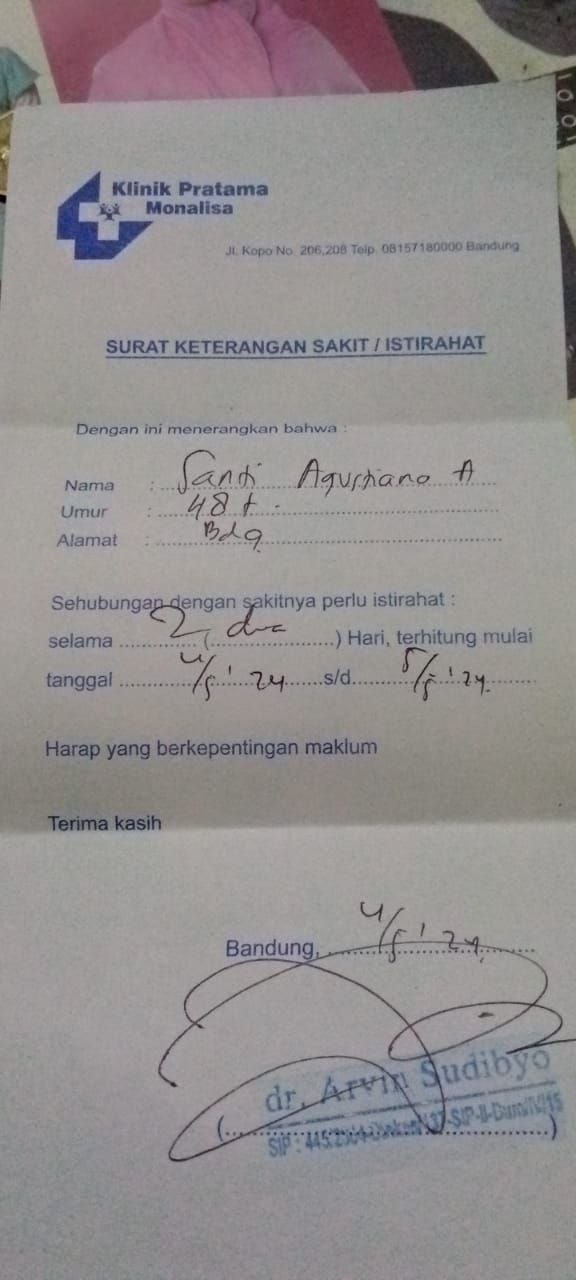 Klinik Pratama
Monalisa
Jl. Kopo No. 206,208 Telp. 08157180000 Bandung
SURAT KETERANGAN SAKIT / ISTIRAHAT
Dengan ini menerangkan bahwa :
Nama : Santi Agustiana A
Umur : 48 t
Alamat : Bdg
Sehubungan dengan sakitnya perlu istirahat :
selama 2 (dua) Hari, terhitung mulai
tanggal 4/5 '24 s/d. 5/5 '24.
Harap yang berkepentingan maklum
Terima kasih
Bandung, 4/5 '24.
dr. Arvin Sudibyo
SIP :